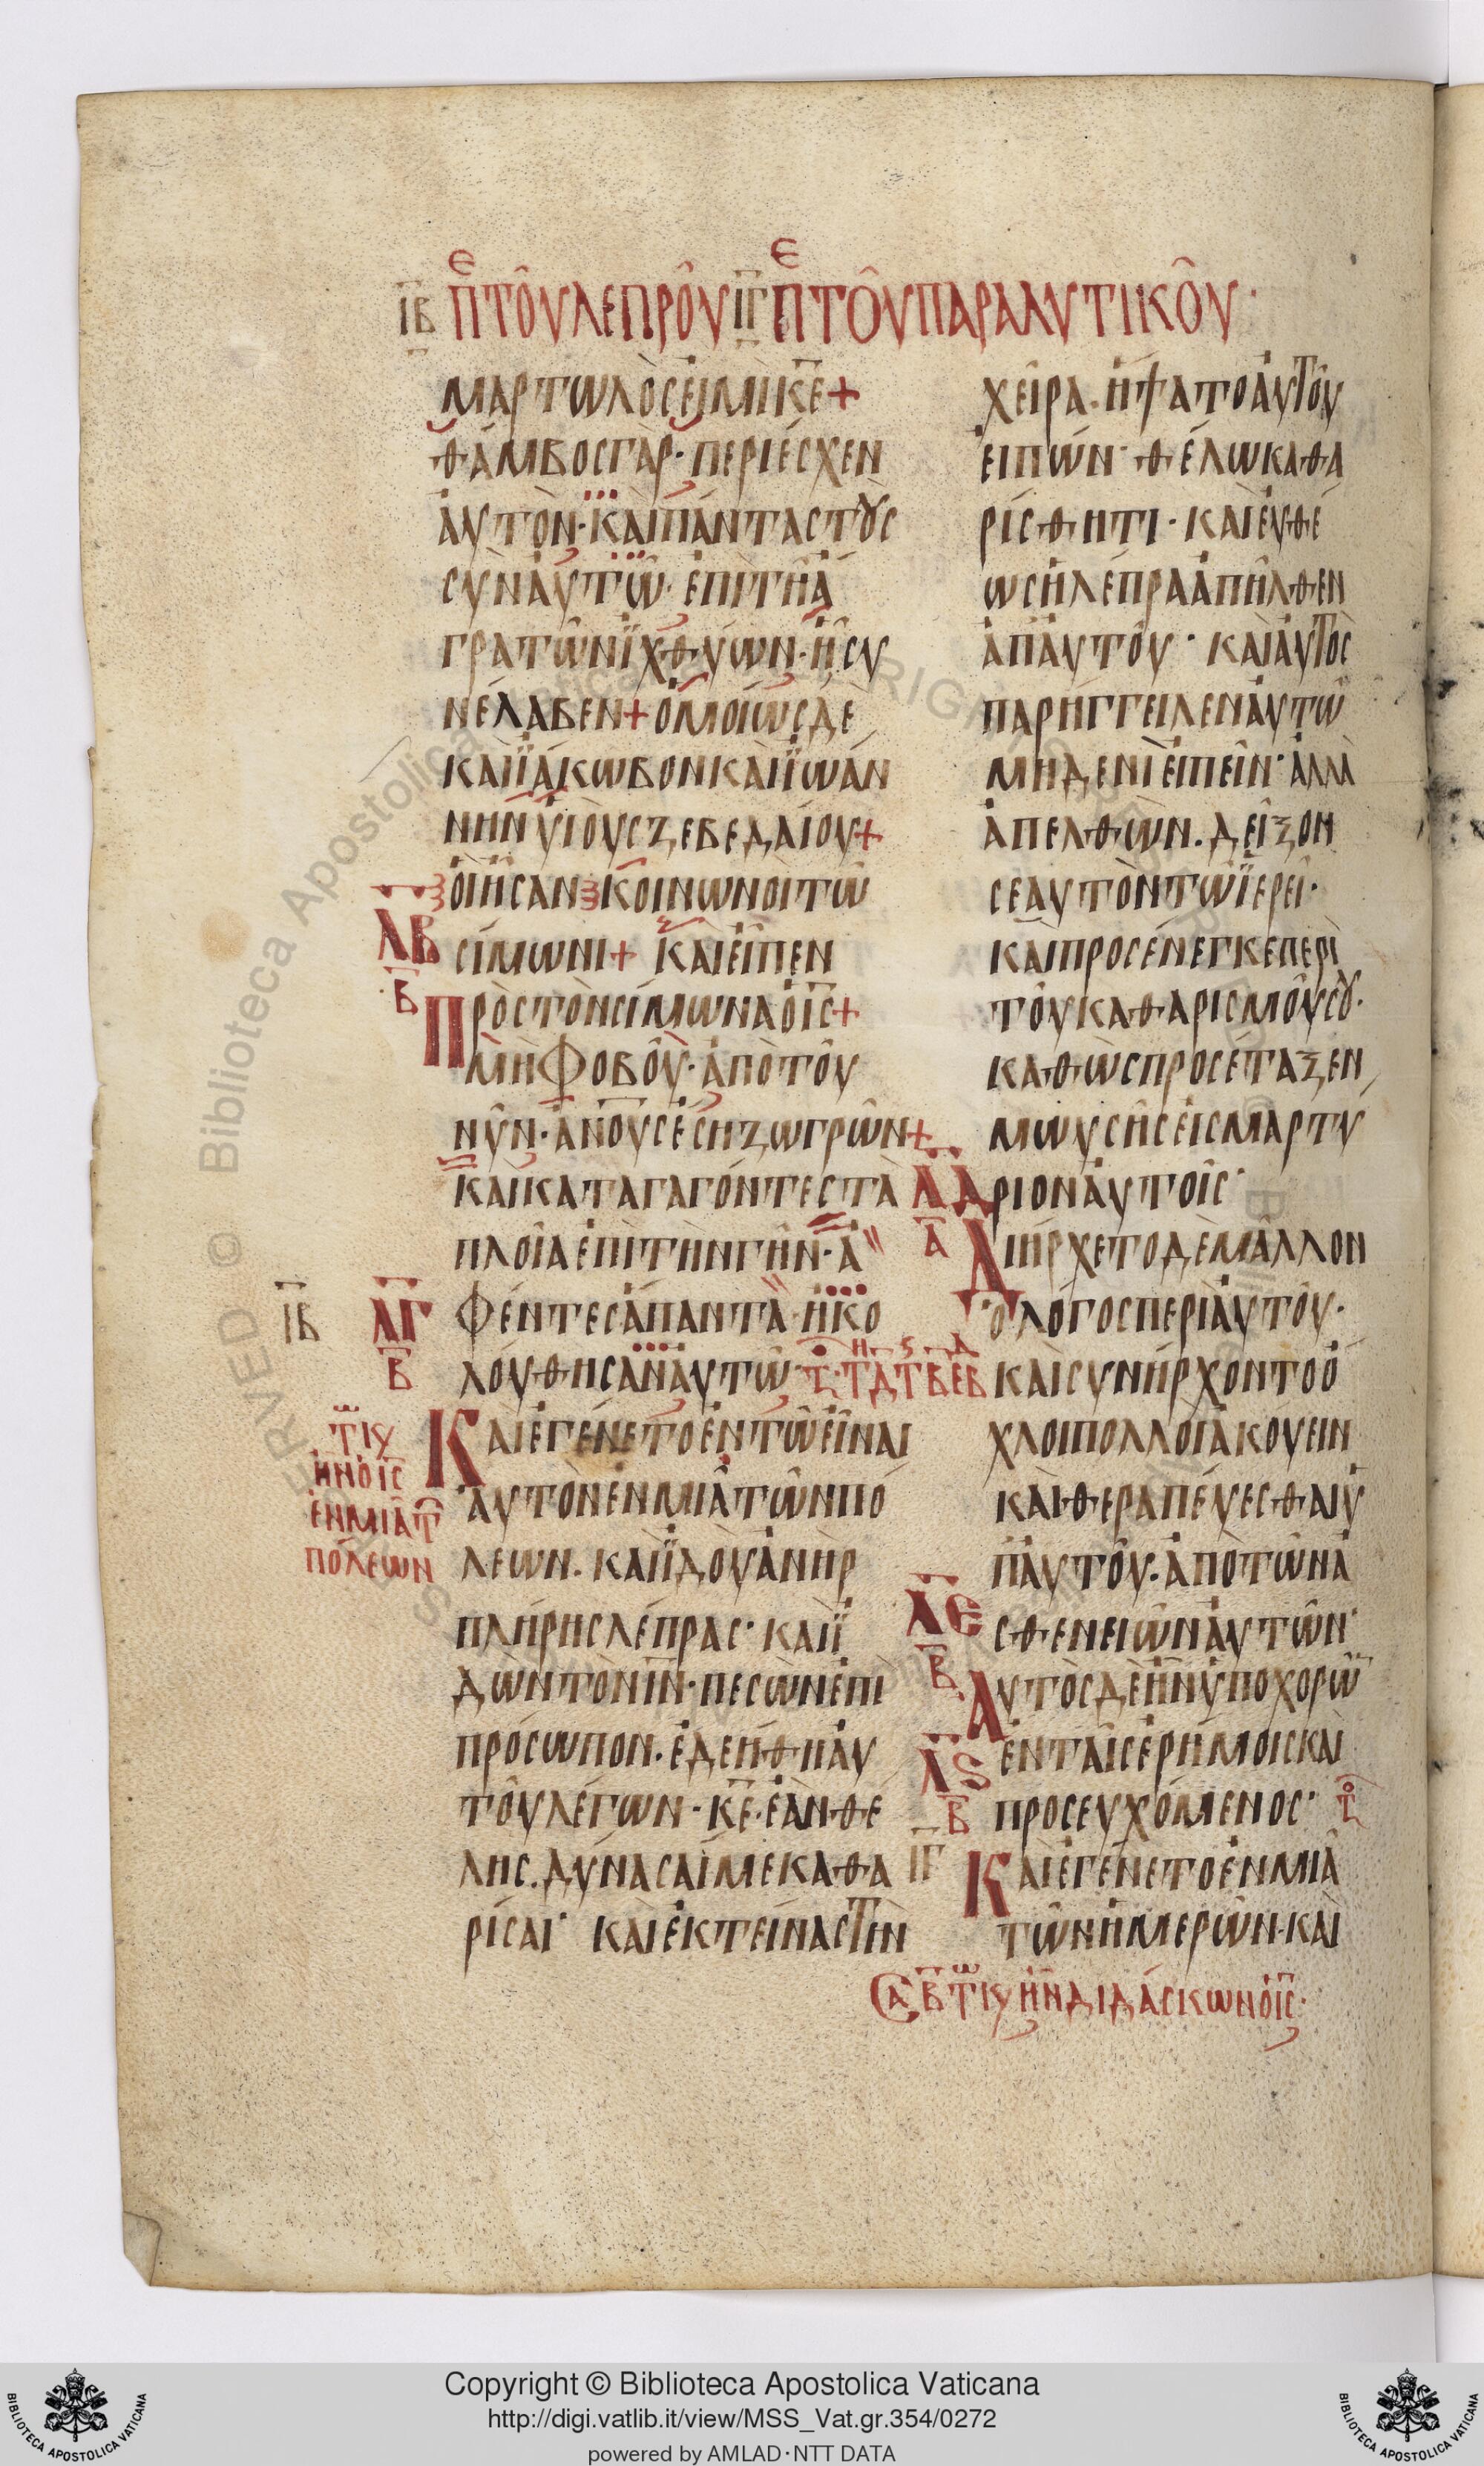 ΙΒ ΠΕ ΤΟΥ ΛΕΠΡΟΥ ΙΓ ΠΕ ΤΟΥ ΠΑΡΑΛΥΤΙΚΟΥ·
ΜΑΡΤΩΛΟΣ ΕΙΜΙ ΚΕ+
ΘΑΜΒΟΣ ΓΑΡ· ΠΕΡΙΕΣΧΕΝ
ΑΥΤΟΝ· ΚΑΙ ΠΑΝΤΑΣ ΤȢΣ
ΣΥΝ ΑΥΤΩ· ΕΠΙ ΤΗ Α
ΓΡΑ ΤΩΝ ΪΧΘΥΩΝ· Η ΣΥ
ΝΕΛΑΒΕΝ+ ΟΜΟΙΩΣ ΔΕ
ΚΑΙ ΪΑΚΩΒΟΝ ΚΑΙ ΪΩΑΝ
ΝΗΝ ΥΙΟΥΣ ΖΕΒΕΔΑΙΟΥ+
ΟΙ ΗΣΑΝ ΚΟΙΝΩΝΟΙ ΤΩ
ΛΒ
Β
ΣΙΜΩΝΙ+ ΚΑΙ ΕΙΠΕΝ
ΠΡΟΣ ΤΟΝ ΣΙΜΩΝΑ Ο ΙΣ+
ΜΗ ΦΟΒΟΥ· ΑΠΟ ΤΟΥ
ΝΥΝ· ΑΝΟΥΣ ΕΣΗ ΖΩΓΡΩΝ+
ΚΑΙ ΚΑΤΑΓΑΓΟΝΤΕΣ ΤΑ
ΠΛΟΙΑ ΕΠΙ ΤΗΝ ΓΗΝ· Α
ΙΒ ΛΓ
Β
ΦΕΝΤΕΣ ΑΠΑΝΤΑ· ΗΚΟ
ΛΟΥΘΗΣΑΝ ΑΥΤΩ·
ΤΩ ΚΥ
ΗΝ Ο ΙΣ
ΕΝ ΜΙΑ Τ
ΠΟΛΕΩΝ
ΚΑΙ ΕΓΕΝΕΤΟ ΕΝ ΤΩ ΕΙΝΑΙ
ΑΥΤΟΝ ΕΝ ΜΙΑ ΤΩΝ ΠΟ
ΛΕΩΝ. ΚΑΙ ΪΔΟΥ ΑΝΗΡ
ΠΛΗΡΗΣ ΛΕΠΡΑΣ· ΚΑΙ Ϊ
ΔΩΝ ΤΟΝ ΙΝ· ΠΕΣΩΝ ΕΠΙ
ΠΡΟΣΩΠΟΝ. ΕΔΕΗΘΗ ΑΥ
ΤΟΥ ΛΕΓΩΝ· ΚΕ· ΕΑΝ ΘΕ
ΛΗΣ. ΔΥΝΑΣΑΙ ΜΕ ΚΑΘΑ
ΡΙΣΑΙ· ΚΑΙ ΕΚΤΕΙΝΑΣ ΤΗΝ
ΧΕΙΡΑ· ΗΨΑΤΟ ΑΥΤΟΥ
ΕΙΠΩΝ· ΘΕΛΩ ΚΑΘΑ
ΡΙΣΘΗΤΙ· ΚΑΙ ΕΥΘΕ
ΩΣ Η ΛΕΠΡΑ ΑΠΗΛΘΕΝ
ΑΠ ΑΥΤΟΥ· ΚΑΙ ΑΥΤΟΣ
ΠΑΡΗΓΓΕΙΛΕΝ ΑΥΤΩ
ΜΗΔΕΝΙ ΕΙΠΕΙΝ· ΑΛΛΑ
ΑΠΕΛΘΩΝ. ΔΕΙΞΟΝ
ΣΕΑΥΤΟΝ ΤΩ ΪΕΡΕΙ·
ΚΑΙ ΠΡΟΣΕΝΕΓΚΕ ΠΕΡΙ
ΤΟΥ ΚΑΘΑΡΙΣΜΟΥ ΣȢ·
ΚΑΘΩΣ ΠΡΟΣΕΤΑΞΕΝ
ΜΩΥΣΗΣ ΕΙΣ ΜΑΡΤΥ
ΛΔ
Α
ΡΙΟΝ ΑΥΤΟΙΣ·
ΔΙΗΡΧΕΤΟ ΔΕ ΜΑΛΛΟΝ
Ο ΛΟΓΟΣ ΠΕΡΙ ΑΥΤΟΥ·
ΚΑΙ ΣΥΝΗΡΧΟΝΤΟ Ο
ΧΛΟΙ ΠΟΛΛΟΙ ΑΚΟΥΕΙΝ
ΚΑΙ ΘΕΡΑΠΕΥΕΣΘΑΙ Υ
Π ΑΥΤΟΥ· ΑΠΟ ΤΩΝ Α
ΛΕ
Β
ΣΘΕΝΕΙΩΝ ΑΥΤΩΝ·
ΑΥΤΟΣ ΔΕ ΗΝ ΥΠΟΧΟΡΩ
ΛϚ
Β
ΕΝ ΤΑΙΣ ΕΡΗΜΟΙΣ ΚΑΙ
ΠΡΟΣΕΥΧΟΜΕΝΟΣ·
ΙΓ
ΚΑΙ ΕΓΕΝΕΤΟ ΕΝ ΜΙΑ
ΤΩΝ ΗΜΕΡΩΝ· ΚΑΙ
ΣΑ Β ΤΩ ΚΥ ΗΝ ΔΙΔΑΣΚΩΝ Ο ΙΣ·
Copyright © Biblioteca Apostolica Vaticana
http://digi.vatlib.it/view/MSS_Vat.gr.354/0272
powered by AMLAD·NTT DATA
BIBLIOTECA APOSTOLICA VATICANA
BIBLIOTECA APOSTOLICA VATICANA